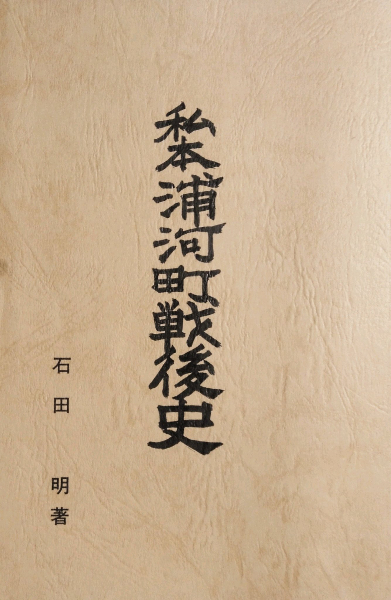 私本浦河町戦後史
石田 明著